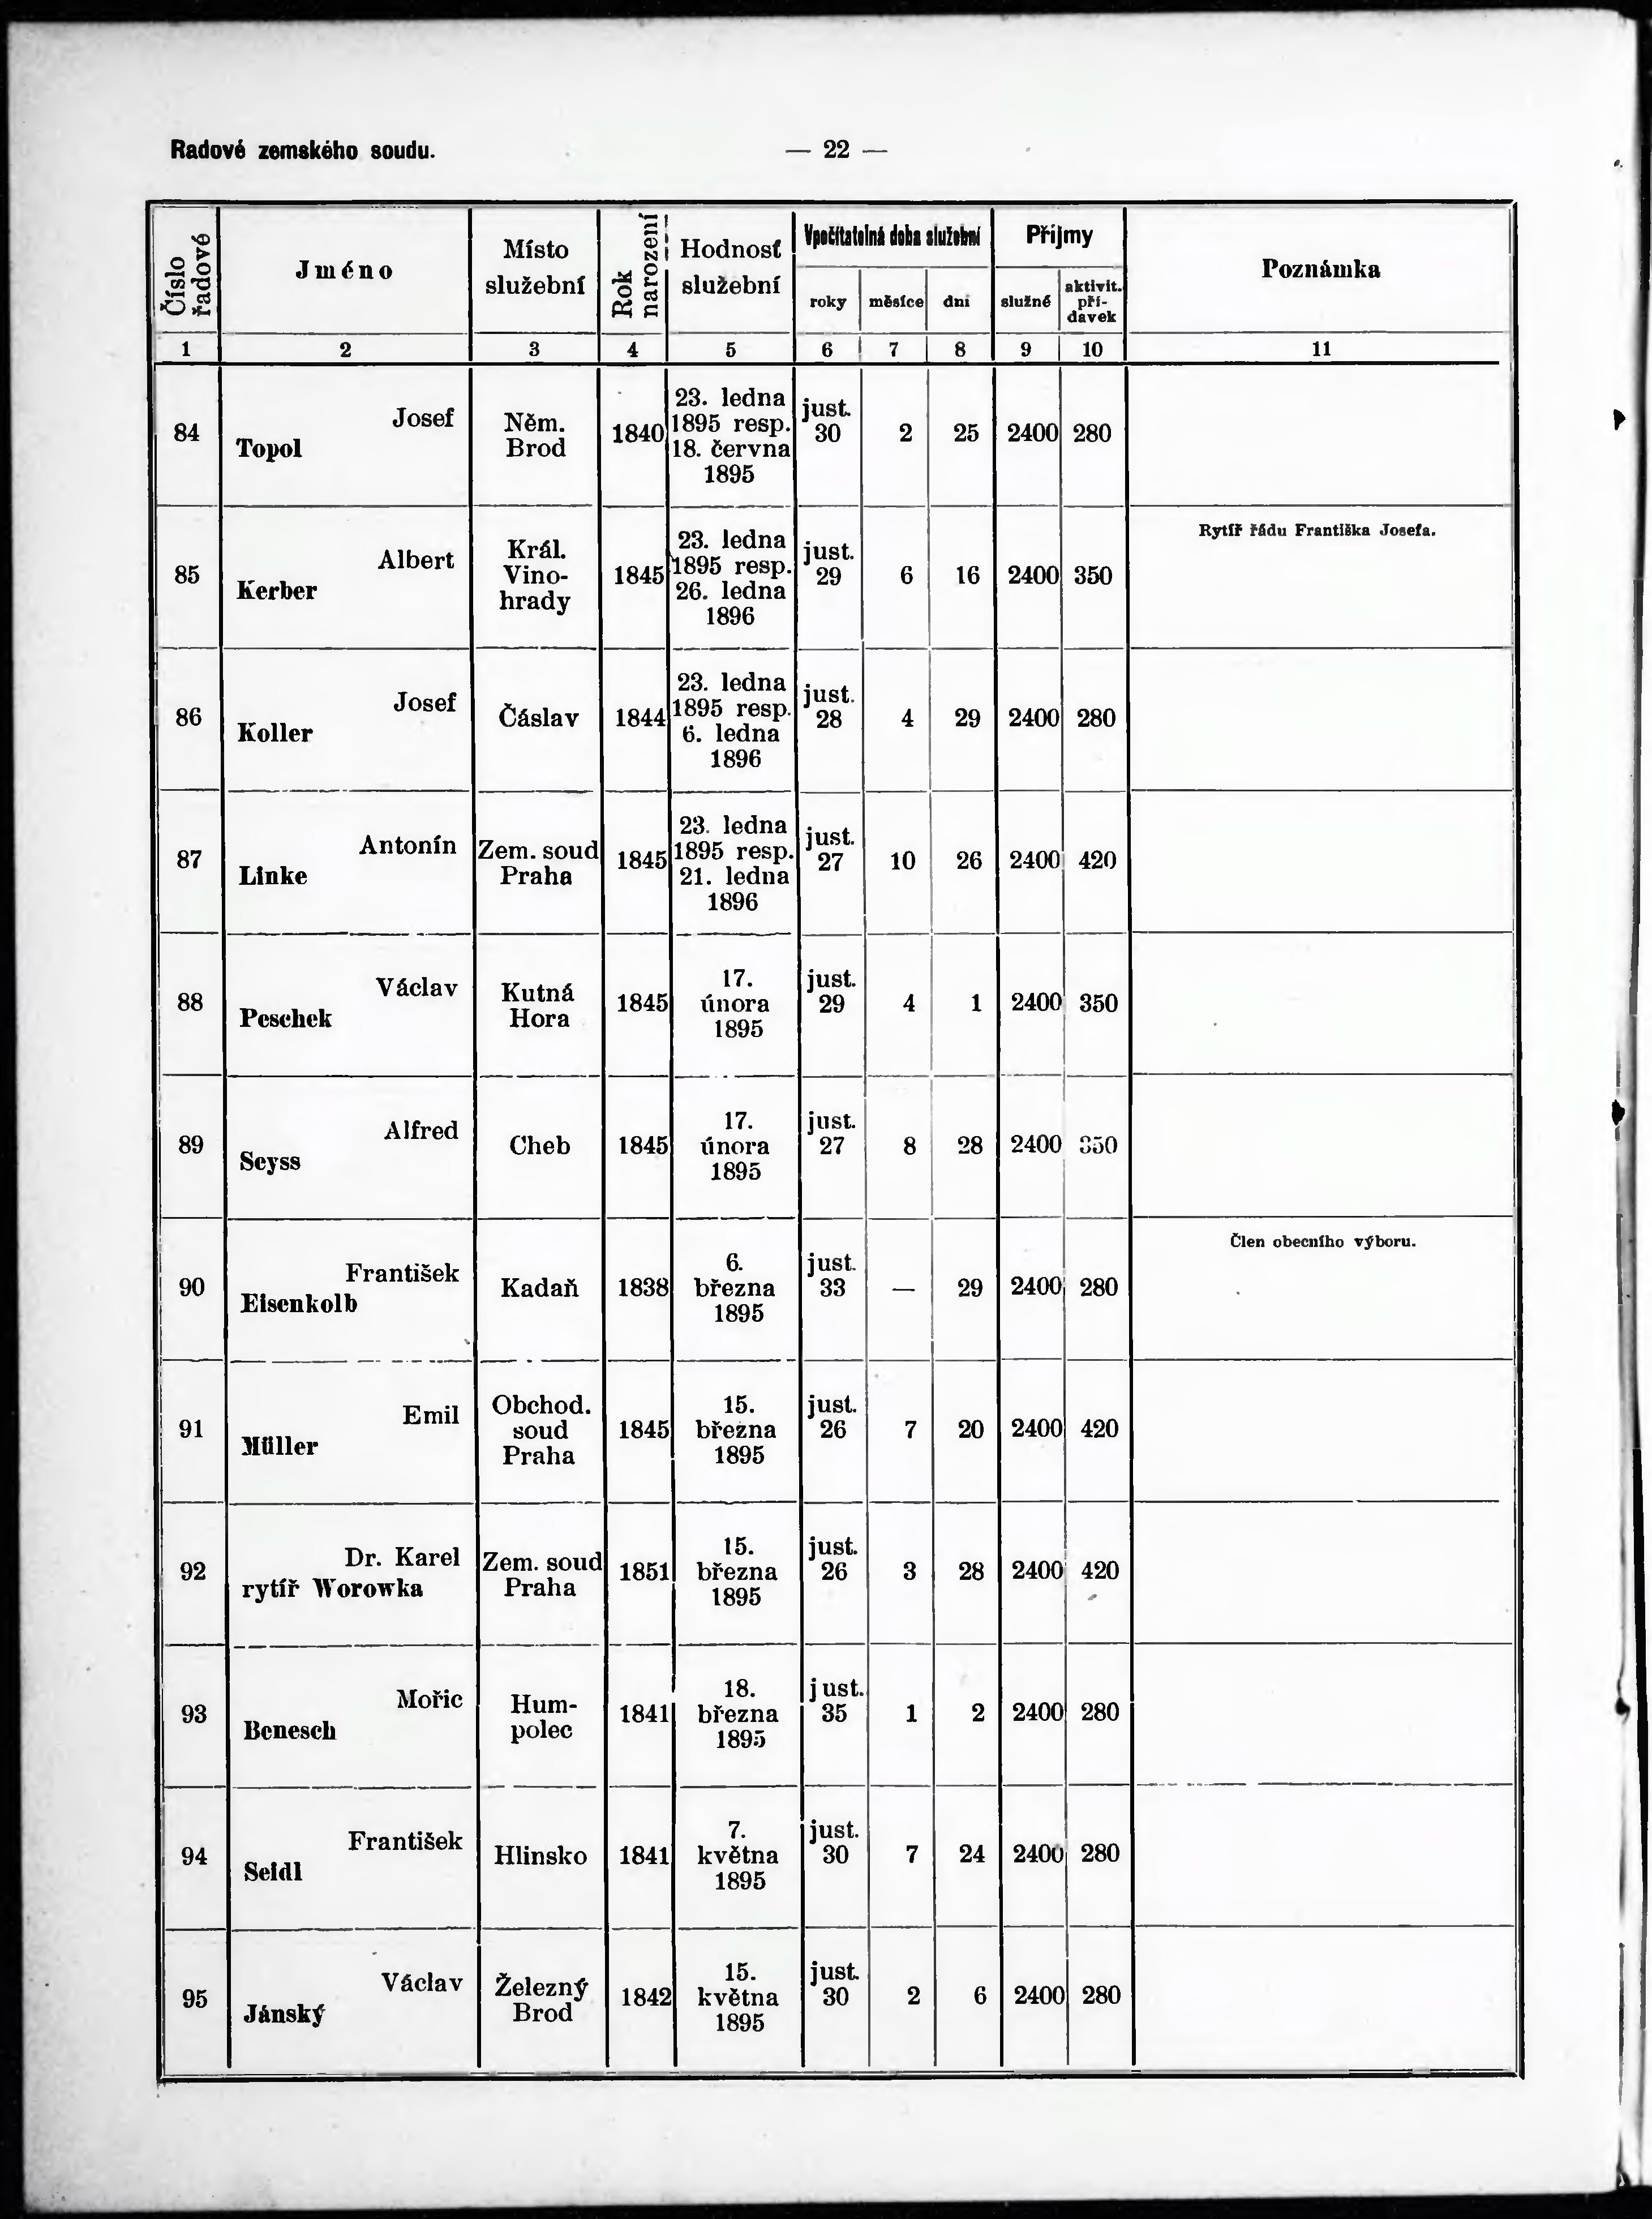 Radové zemského soudu.
— 22 —
Číslo řadové
Jméno
Místo
služební
Rok
narození
Hodnosť
služební
Vpočítatelná doba služební
roky
měsíce
dni
Příjmy
služné
aktivit.
pří-
davek
Poznámka
1 2 3 4 5 6 7 8 9 10 11
84
Josef
Topol
Něm.
Brod
1840
23. ledna
1895 resp.
18. června
1895
just.
30
2
25
2400
280
85
Albert
Kerber
Král.
Vino-
hrady
1845
23. ledna
1895 resp.
26. ledna
1896
just.
29
6
16
2400
350
Rytíř řádu Františka Josefa.
86
Josef
Koller
Čáslav
1844
23. ledna
1895 resp.
6. ledna
1896
just.
28
4
29
2400
280
87
Antonín
Linke
Zem. soud
Praha
1845
23. ledna
1895 resp.
21. ledna
1896
just.
27
10
26
2400
420
88
Václav
Peschek
Kutná
Hora
1845
17.
února
1895
just.
29
4
1
2400
350
89
Alfred
Seyss
Cheb
1845
17.
února
1895
just.
27
8
28
2400
350
90
František
Eisenkolb
Kadaň
1838
6.
března
1895
just.
33
—
29
2400
280
Člen obecního výboru.
91
Emil
Müller
Obchod.
soud
Praha
1845
15.
března
1895
just.
26
7
20
2400
420
92
Dr. Karel
rytíř Worowka
Zem. soud
Praha
1851
15.
března
1895
just.
26
3
28
2400
420
93
Mořic
Benesch
Hum-
polec
1841
18.
března
1895
just.
35
1
2
2400
280
94
František
Seidl
Hlinsko
1841
7.
května
1895
just.
30
7
24
2400
280
95
Václav
Jánský
Železný
Brod
1842
15.
května
1895
just.
30
2
6
2400
280